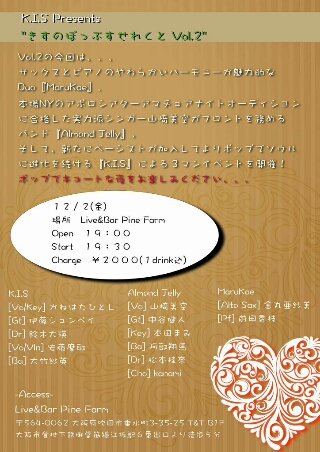 K.I.S Presents
"きすのぽっぷすせれくと Vol.2"
Vol.2の今回は、、、
サックスとピアノのやわらかいハーモニーが魅力的な
Duo『MaruKae』。
本場NYのアポロシアターアマチュアナイトオーディション
に合格した実力派シンガー山崎美空がフロントを務める
バンド『Almond Jelly』。
そして、新たにベーシストが加入してよりポップでソウル
に進化を続ける『K.I.S』による3コンイベントを開催!
ポップでキュートな夜をお楽しみください、、、
12/2(金)
場所 Live&Bar Pine Farm
Open 19:00
Start 19:30
Charge ¥2000(1drink込)
K.I.S
[Vo/Key] かねはたひとし
[Gt] 伊藤シュンペイ
[Dr] 鈴木大悟
[Vo/Vln] 安藤
[Ba] 大竹
Almond Jelly
[Vo] 山崎美空
[Gt] 中谷健人
[Key] 本田まみ
[Ba] 阿部
[Dr] 松本
[Cho] kanami
MaruKae
[Alto Sax] 金丸亜紗美
[Pf] 前田
-Access-
Live&Bar Pine Farm
〒564-0062 大阪府吹田市垂水町3-35-25 T&T B1F
大阪市営地下鉄御堂筋線江坂駅6番出口より徒歩5分